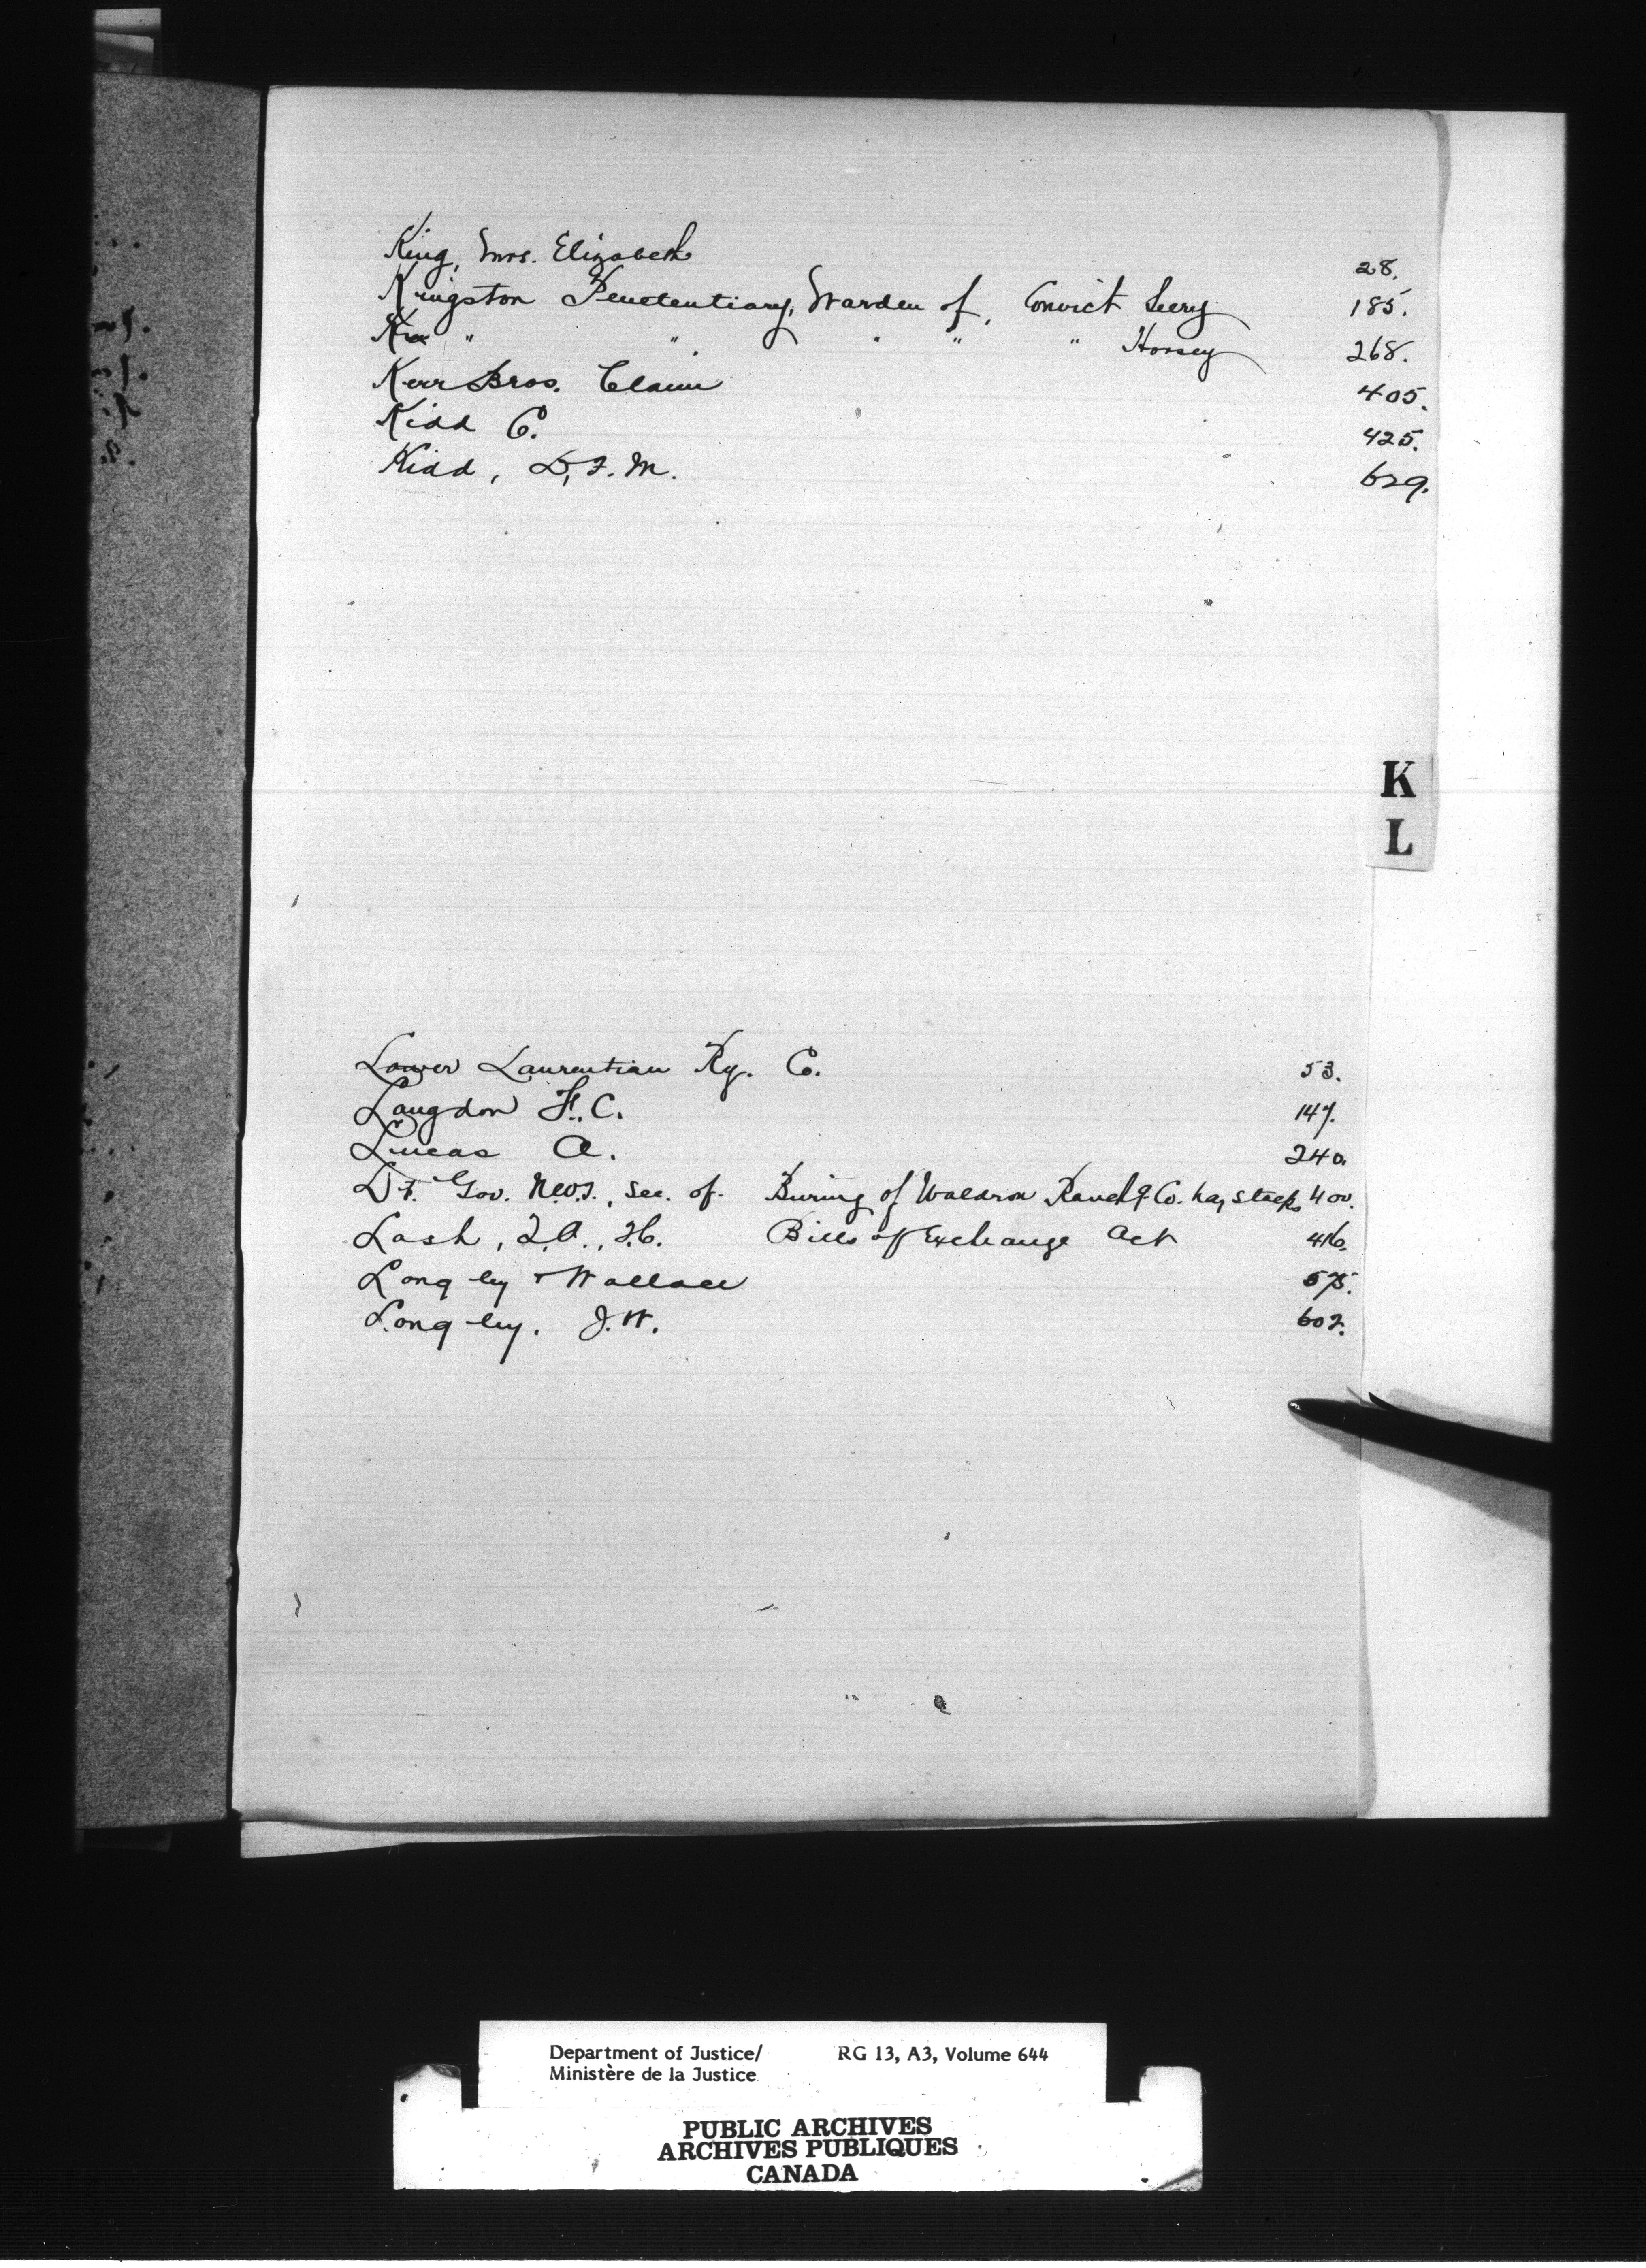 King, Mrs. Elizabeth 28.
Kingston Penetentiary, Warden of, Convict Seery 185.
" " " " " Horsey 268.
Kerr Bros. Claim 405.
Kidd C. 425.
Kidd, D, F. M. 629.
K
L
Lower Laurentian Ry. Co. 53.
Langdon F. C. 147.
Lucas A. 240.
Lt. Gov. N.W.T., Sec. of. Buring of Waldron Ranch Co. hay stacks 400.
Lash, Bills of Exchange Act 416.
Longley & Wallace 575.
Longley. J. W. 602.
Department of Justice/ RG 13, A3, Volume 644
Ministère de la Justice
PUBLIC ARCHIVES
ARCHIVES PUBLIQUES
CANADA